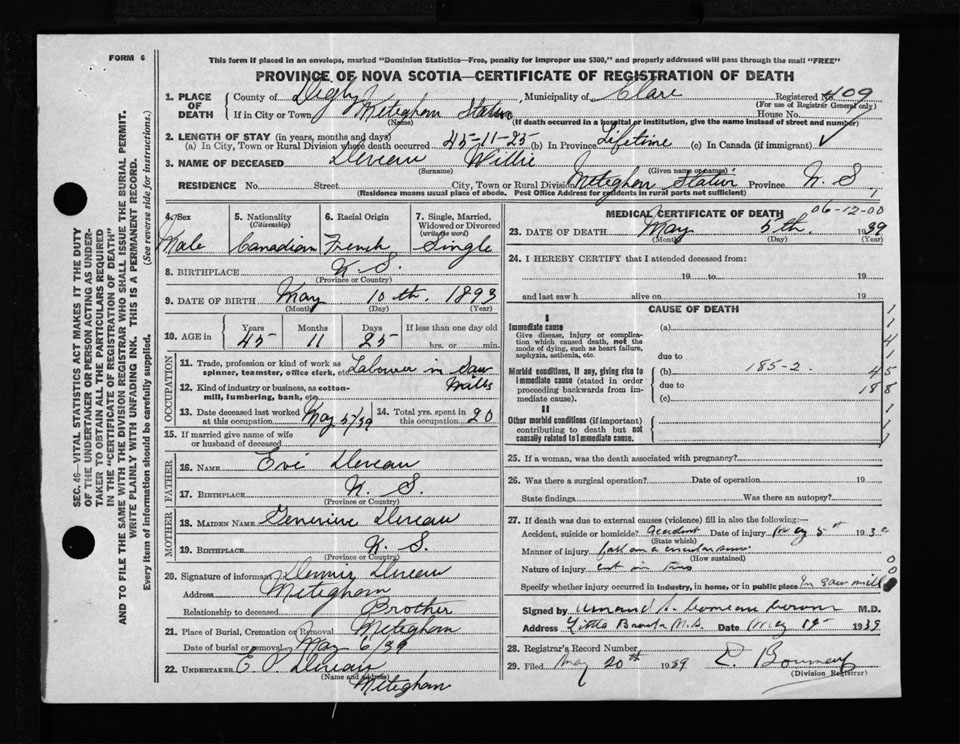 FORM 6
This form if placed in an envelope, marked "Dominion Statistics—Free, penalty for improper use $300," and properly addressed will pass through the mail "FREE"
PROVINCE OF NOVA SCOTIA—CERTIFICATE OF REGISTRATION OF DEATH
1. PLACE OF DEATH County of Digby Municipality of Clare Registered No. 409
(For use of Registrar General only)
If in City or Town Meteghan Station House No.
(Name) (If death occurred in a hospital or institution, give the name instead of street and number)
2. LENGTH OF STAY (in years, months and days)
(a) In City, Town or Rural Division where death occurred 45-11-25 (b) In Province Lifetime (c) In Canada (if immigrant) ✓
3. NAME OF DECEASED Deveau Willie
(Surname) (Given name or names)
RESIDENCE No. Street City, Town or Rural Division Meteghan Station Province N. S.
(Residence means usual place of abode. Post Office Address for residents in rural parts not sufficient)
4. Sex Male
5. Nationality (Citizenship) Canadian
6. Racial Origin French
7. Single, Married, Widowed or Divorced (write the word) Single
8. BIRTHPLACE N. S.
(Province or Country)
9. DATE OF BIRTH May 10th. 1893
(Month) (Day) (Year)
10. AGE in Years Months Days If less than one day old
45 11 25 hrs. or min.
OCCUPATION
11. Trade, profession or kind of work as spinner, teamster, office clerk, etc. Labourer in Saw
12. Kind of industry or business, as cotton-mill, lumbering, bank, etc. Mills
13. Date deceased last worked at this occupation May 5/39
14. Total yrs. spent in this occupation 20
15. If married give name of wife or husband of deceased
FATHER
16. NAME Evé Deveau
17. BIRTHPLACE N. S.
(Province or Country)
MOTHER
18. MAIDEN NAME Deveau
19. BIRTHPLACE N. S.
(Province or Country)
20. Signature of informant Dennis Deveau
Address Meteghan
Relationship to deceased Brother
21. Place of Burial, Cremation or Removal Meteghan
Date of burial or removal May 6/39
22. UNDERTAKER E. P. Deveau
(Name and address)
Meteghan
MEDICAL CERTIFICATE OF DEATH 06-12-00
23. DATE OF DEATH May 5th. 1939
(Month) (Day) (Year)
24. I HEREBY CERTIFY that I attended deceased from:
19 to 19
and last saw h alive on 19
CAUSE OF DEATH
I
Immediate cause
Give disease, injury or complication which caused death, not the mode of dying, such as heart failure, asphyxia, asthenia, etc.
(a)
due to
Morbid conditions, if any, giving rise to immediate cause (stated in order proceeding backwards from immediate cause).
(b) 185-2.
due to
(c)
II
Other morbid conditions (if important) contributing to death but not causally related to immediate cause.
25. If a woman, was the death associated with pregnancy?
26. Was there a surgical operation? Date of operation 19
State findings Was there an autopsy?
27. If death was due to external causes (violence) fill in also the following:—
Accident, suicide or homicide? Accident Date of injury May 5th 1939
(State which)
Manner of injury fall on a circular saw
(How sustained)
Nature of injury cut in two
Specify whether injury occurred in industry, in home, or in public place In saw mill
Signed by Comeau M.D.
Address Little Brook N.S. Date May 19th 1939
28. Registrar's Record Number
29. Filed May 20th 1939
(Division Registrar)
SEC. 46—VITAL STATISTICS ACT MAKES IT THE DUTY
OF THE UNDERTAKER OR PERSON ACTING AS UNDER-
TAKER TO OBTAIN ALL THE PARTICULARS REQUIRED
IN THE "CERTIFICATE OF REGISTRATION OF DEATH"
AND TO FILE THE SAME WITH THE DIVISION REGISTRAR WHO SHALL ISSUE THE BURIAL PERMIT.
WRITE PLAINLY WITH UNFADING INK. THIS IS A PERMANENT RECORD.
Every item of information should be carefully supplied. (See reverse side for instructions.)